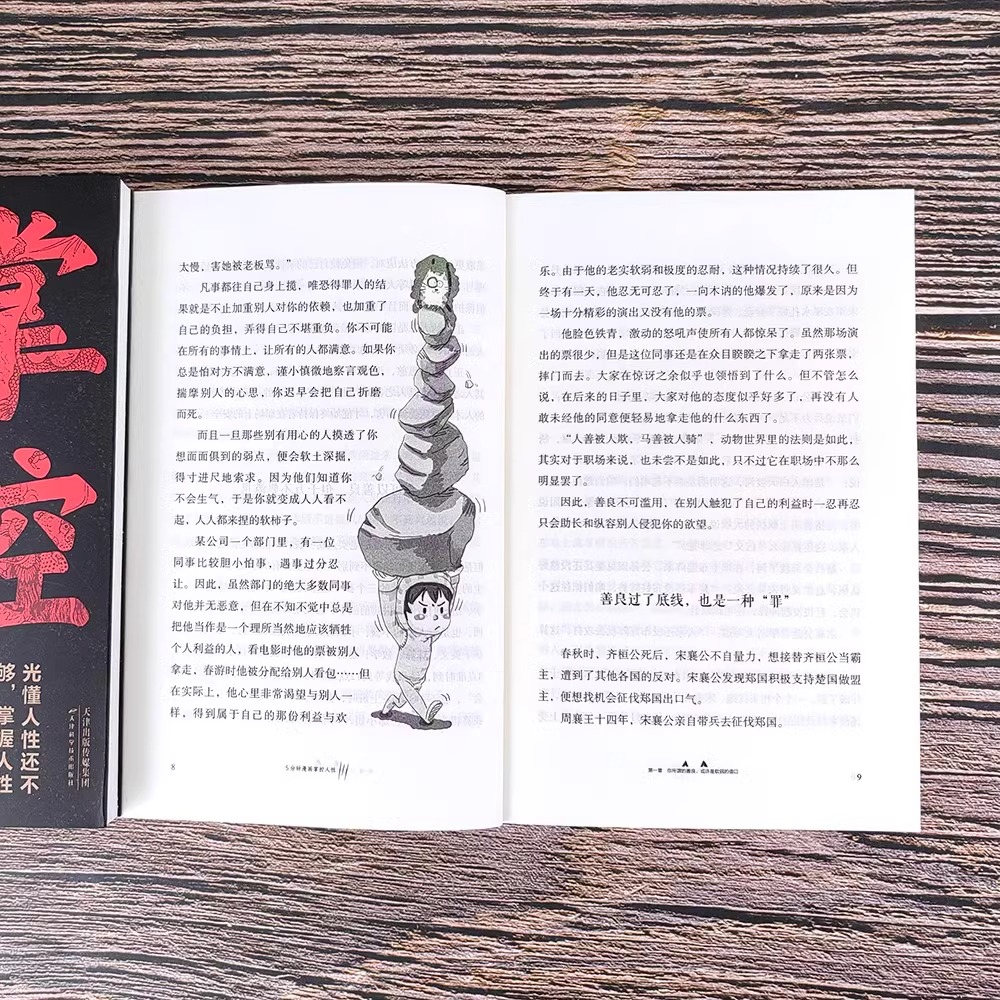 掌
控
光懂人性还不
够，掌握人性
天津出版传媒集团
天津科学技术出版社
太慢，害她被老板骂。”
凡事都往自己身上揽，唯恐得罪人的结
果就是不止加重别人对你的依赖，也加重了
自己的负担，弄得自己不堪重负。你不可能
在所有的事情上，让所有的人都满意。如果你
总是怕对方不满意，谨小慎微地察言观色，
揣摩别人的心思，你迟早会把自己折磨
而死。
而且一旦那些别有用心的人摸透了你
想面面俱到的弱点，便会软土深掘，
得寸进尺地索求。因为他们知道你
不会生气，于是你就变成人人看不
起，人人都来捏的软柿子。
某公司一个部门里，有一位
同事比较胆小怕事，遇事过分忍
让。因此，虽然部门的绝大多数同事
对他并无恶意，但在不知不觉中总是
把他当作是一个理所当然地应该牺牲
个人利益的人，看电影时他的票被别人
拿走，春游时他被分配给别人看包……但
在实际上，他心里非常渴望与别人一
样，得到属于自己的那份利益与欢
8
5分钟漫画掌控人性
乐。由于他的老实软弱和极度的忍耐，这种情况持续了很久。但
终于有一天，他忍无可忍了，一向木讷的他爆发了，原来是因为
一场十分精彩的演出又没有他的票。
他脸色铁青，激动的怒吼声使所有人都惊呆了。虽然那场演
出的票很少，但是这位同事还是在众目睽睽之下拿走了两张票，
摔门而去。大家在惊讶之余似乎也领悟到了什么。但不管怎么
说，在后来的日子里，大家对他的态度似乎好多了，再没有人
敢未经他的同意便轻易地拿走他的什么东西了。
“人善被人欺，马善被人骑”，动物世界里的法则是如此，
其实对于职场来说，也未尝不是如此，只不过它在职场中不那么
明显罢了。
因此，善良不可滥用，在别人触犯了自己的利益时一忍再忍
只会助长和纵容别人侵犯你的欲望。
善良过了底线，也是一种“罪”
春秋时，齐桓公死后，宋襄公不自量力，想接替齐桓公当霸
主，遭到了其他各国的反对；宋襄公发现郑国积极支持楚国做盟
主，便想找机会征伐郑国出口气。
周襄王十四年，宋襄公亲自带兵去征伐郑国。
第一章 你所谓的善良，或许是软弱的借口
9